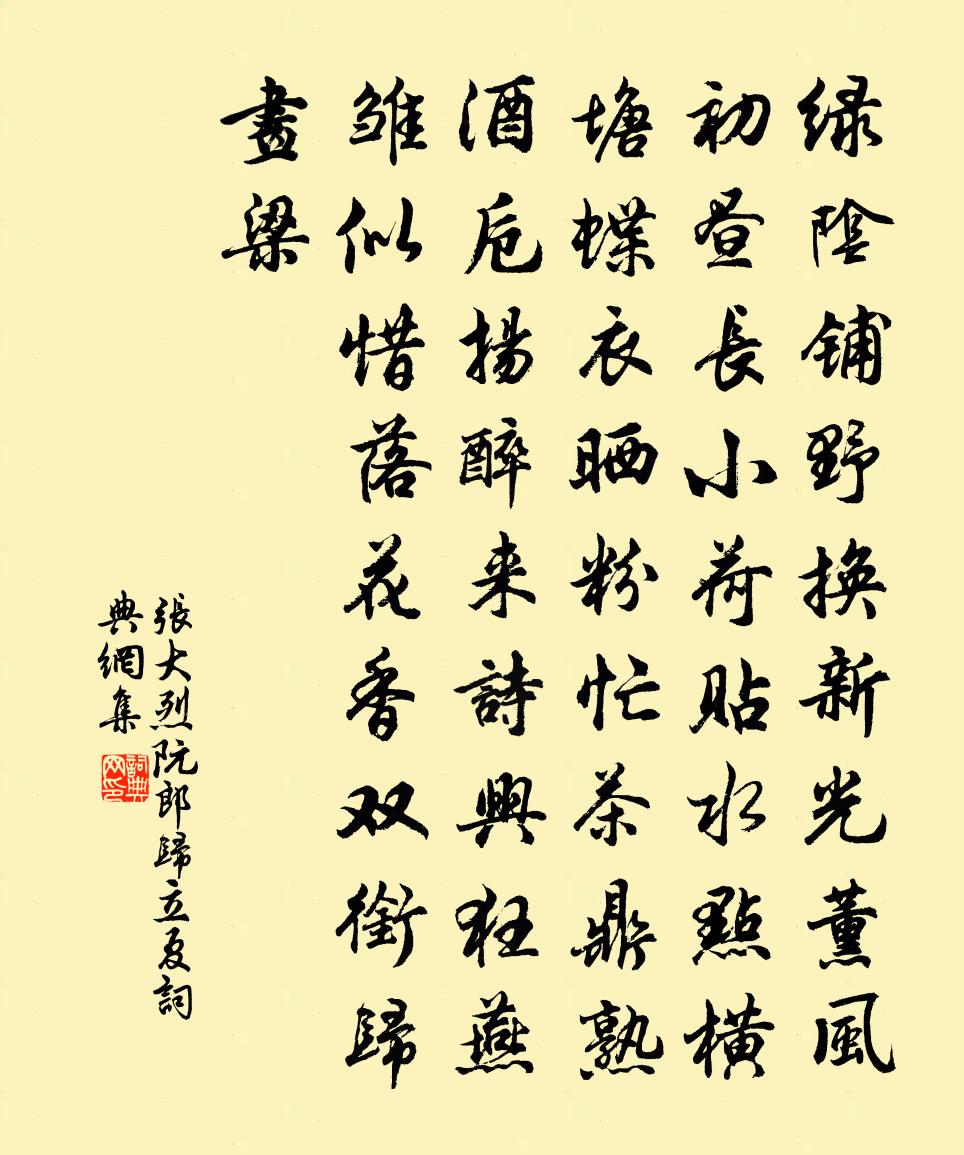 绿陰铺野換新光薰風
初昼長小荷貼水點橫
塘蝶衣晒粉忙茶鼎熟
酒卮揚醉来詩興狂燕
雏似惜落花香双銜歸
畫梁
張大烈阮郎歸立夏詞
典網集
詞典网印